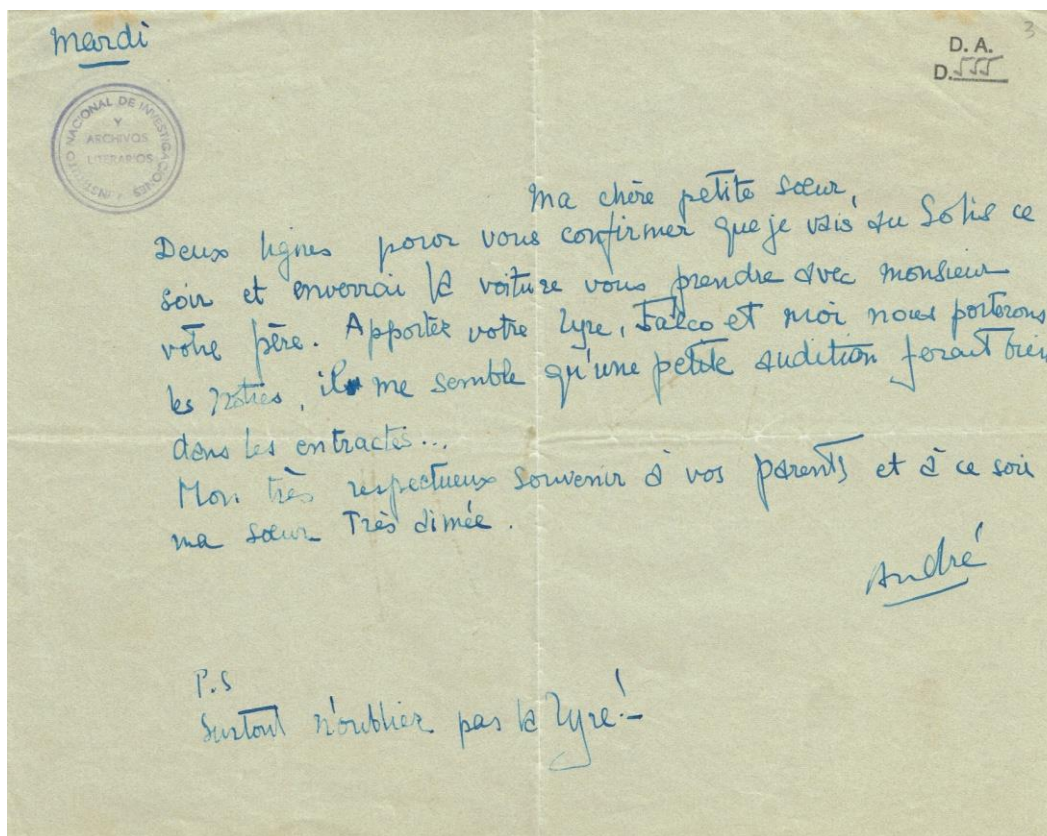 mardi
3
D. A.
D. 555
INSTITUTO NACIONAL DE INVESTIGACIONES
Y
ARCHIVOS
LITERARIOS
Ma chère petite sœur,
Deux lignes pour vous confirmer que je vais au Solis ce
soir et enverrai la voiture vous prendre avec monsieur
votre père. Apportez votre lyre, Falco et moi nous porterons
les notres, il me semble qu'une petite audition ferait bien
dans les entractes...
Mon très respectueux souvenir à vos parents et à ce soir
ma sœur Très aimée.
André
P.S
Surtout n'oubliez pas la lyre!-